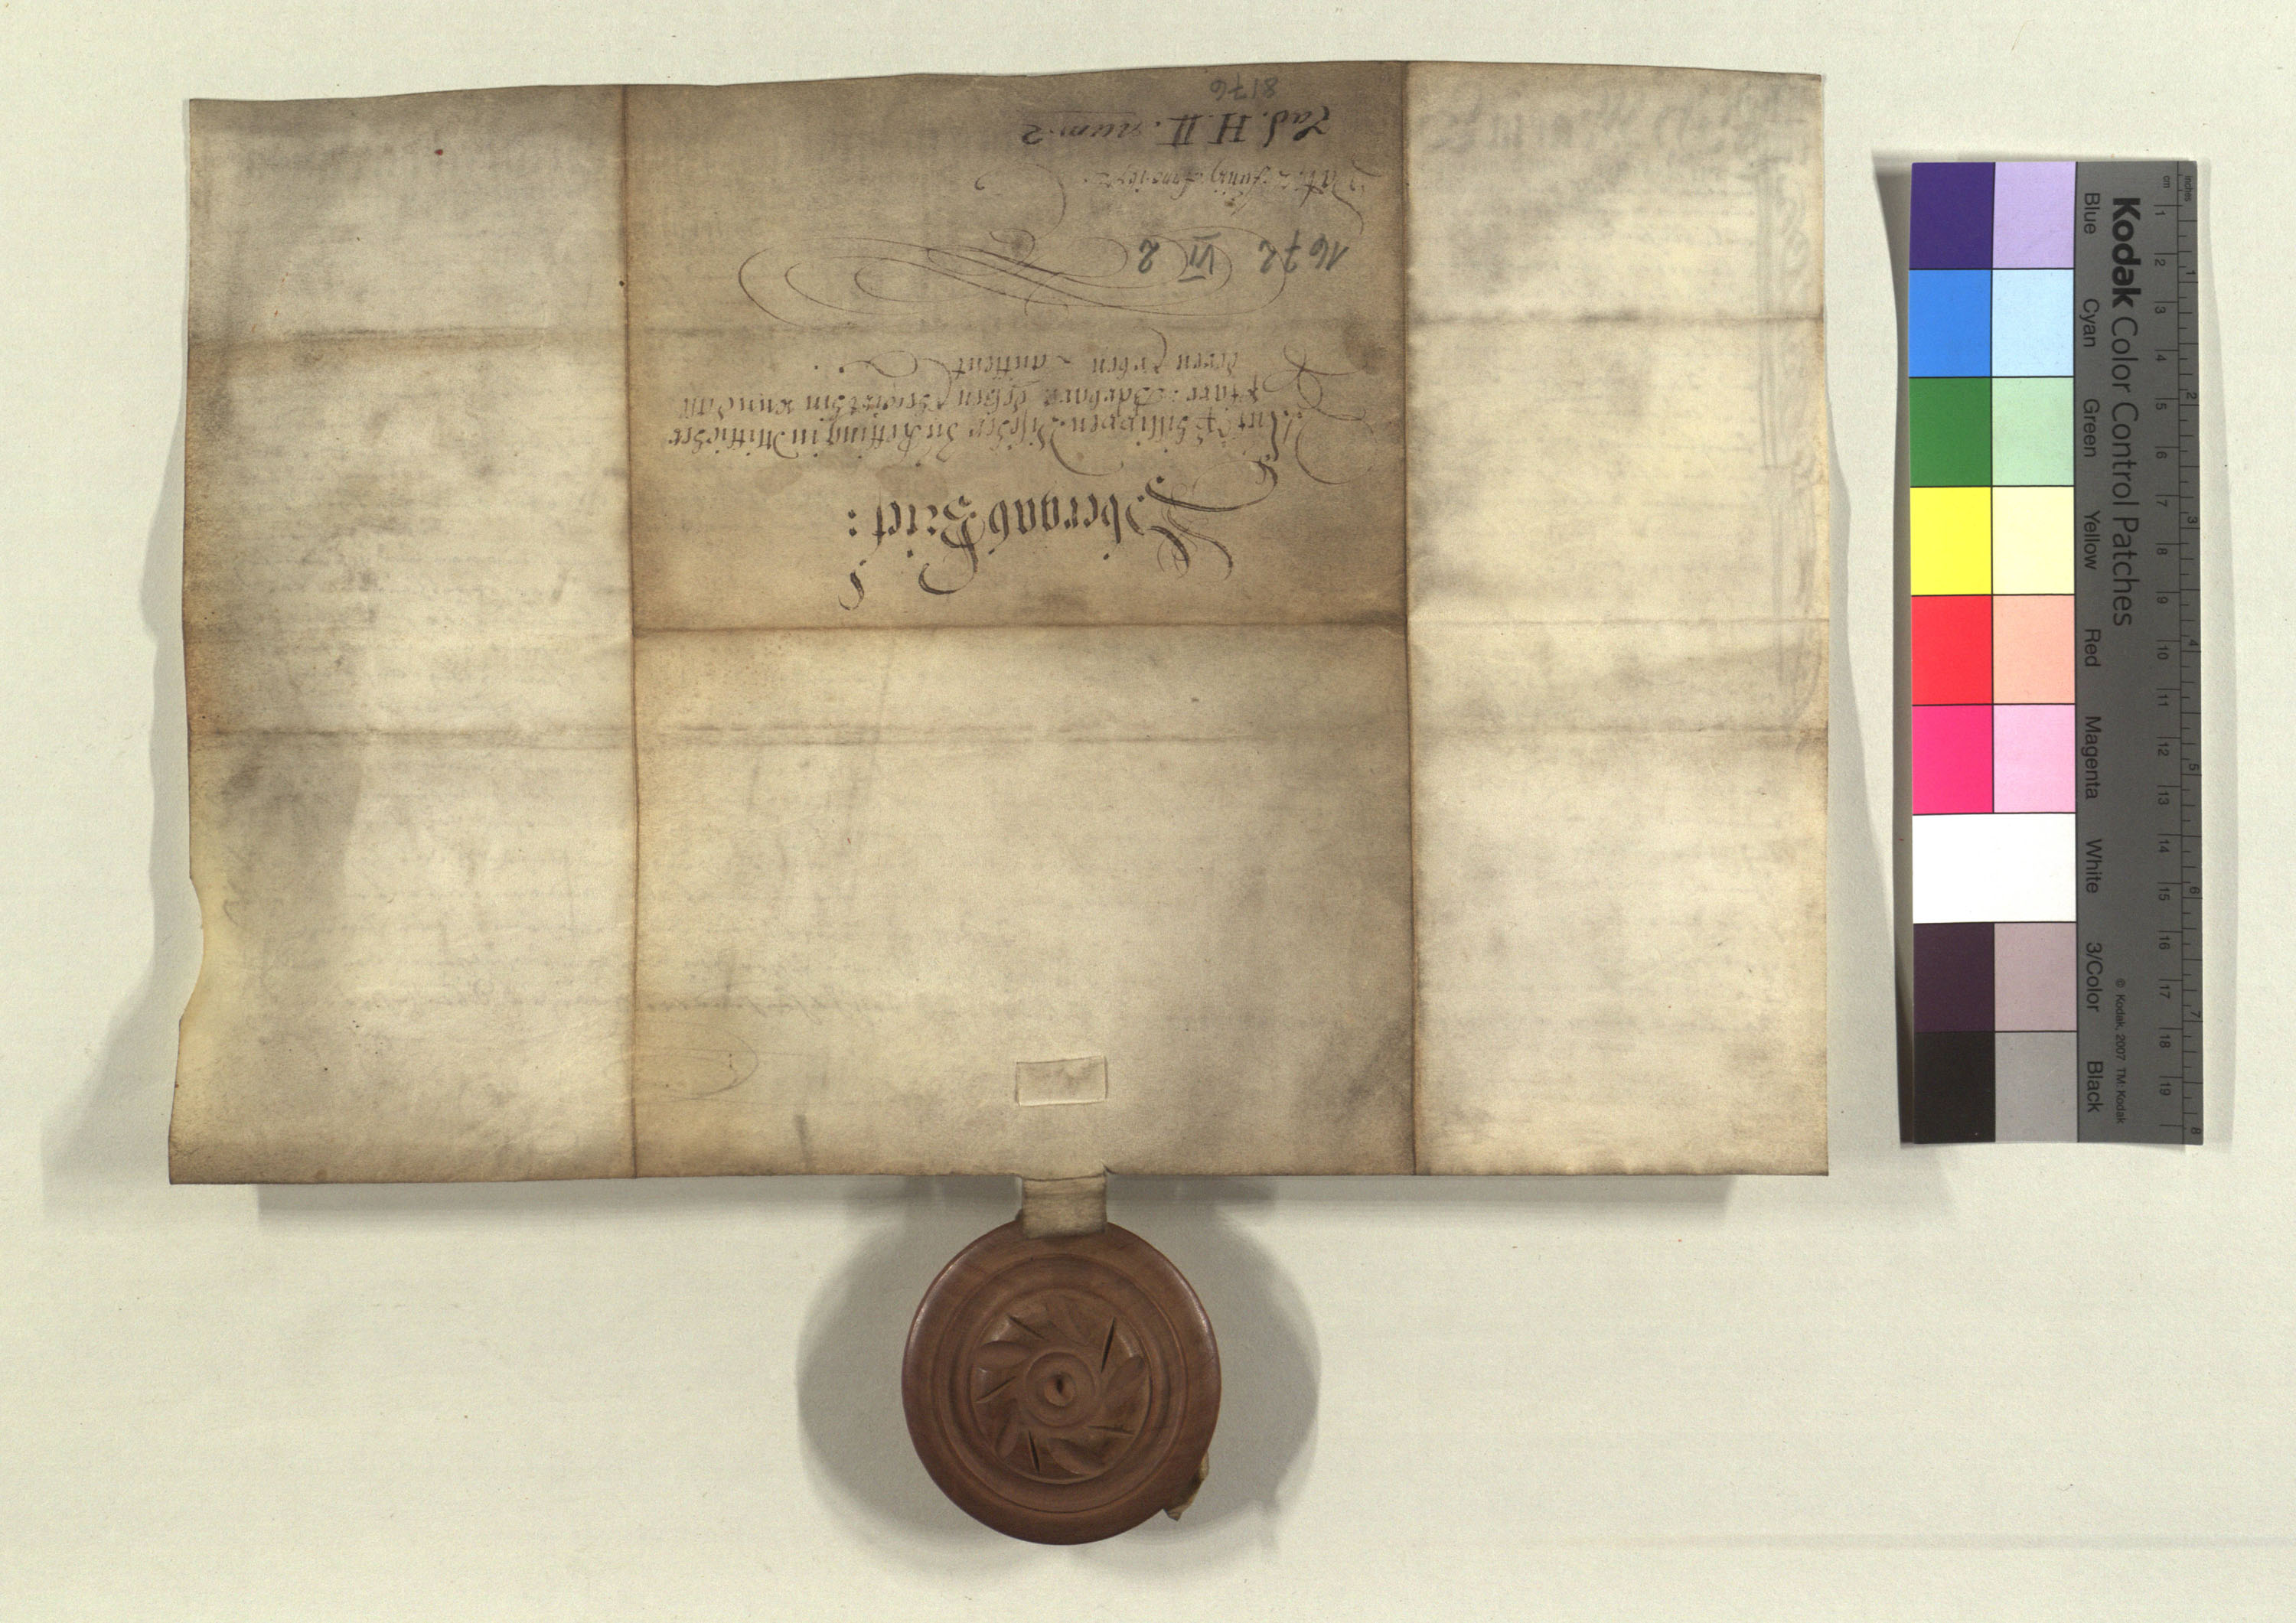 Übergab Brief:
Auf Philippen Vischer zu Kessing in Mitticher
Pfarr: Barbara dessen Eheweib und
deren Erben lauttent
1672 VI 2
Dat. 2. Junij Anno 1672.
Lad. H. II. num. 2
8176
Kodak Color Control Patches
© Kodak, 2007 TM: Kodak
Blue Cyan Green Yellow Red Magenta White 3/Color Black
inches 1 2 3 4 5 6 7 8
cm 1 2 3 4 5 6 7 8 9 10 11 12 13 14 15 16 17 18 19